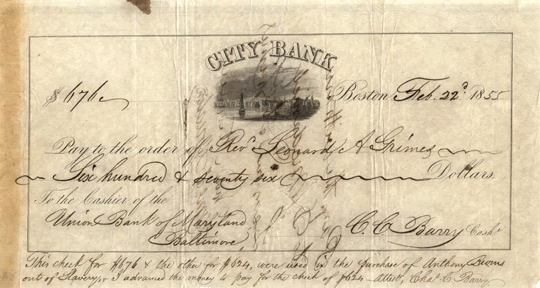 CITY BANK
$676 Boston Feb. 22d 1855
Pay to the order of Revd Leonard A Grimes
Six hundred & seventy six Dollars.
To the Cashier of the
Union Bank of Maryland C. C. Barry Cashr
Baltimore
This check for $676 & the other for $624, were used in the purchase of Anthony Burns
out of Slavery, & I advanced the money to pay for the check of $624 - attest, Chas. C. Barry